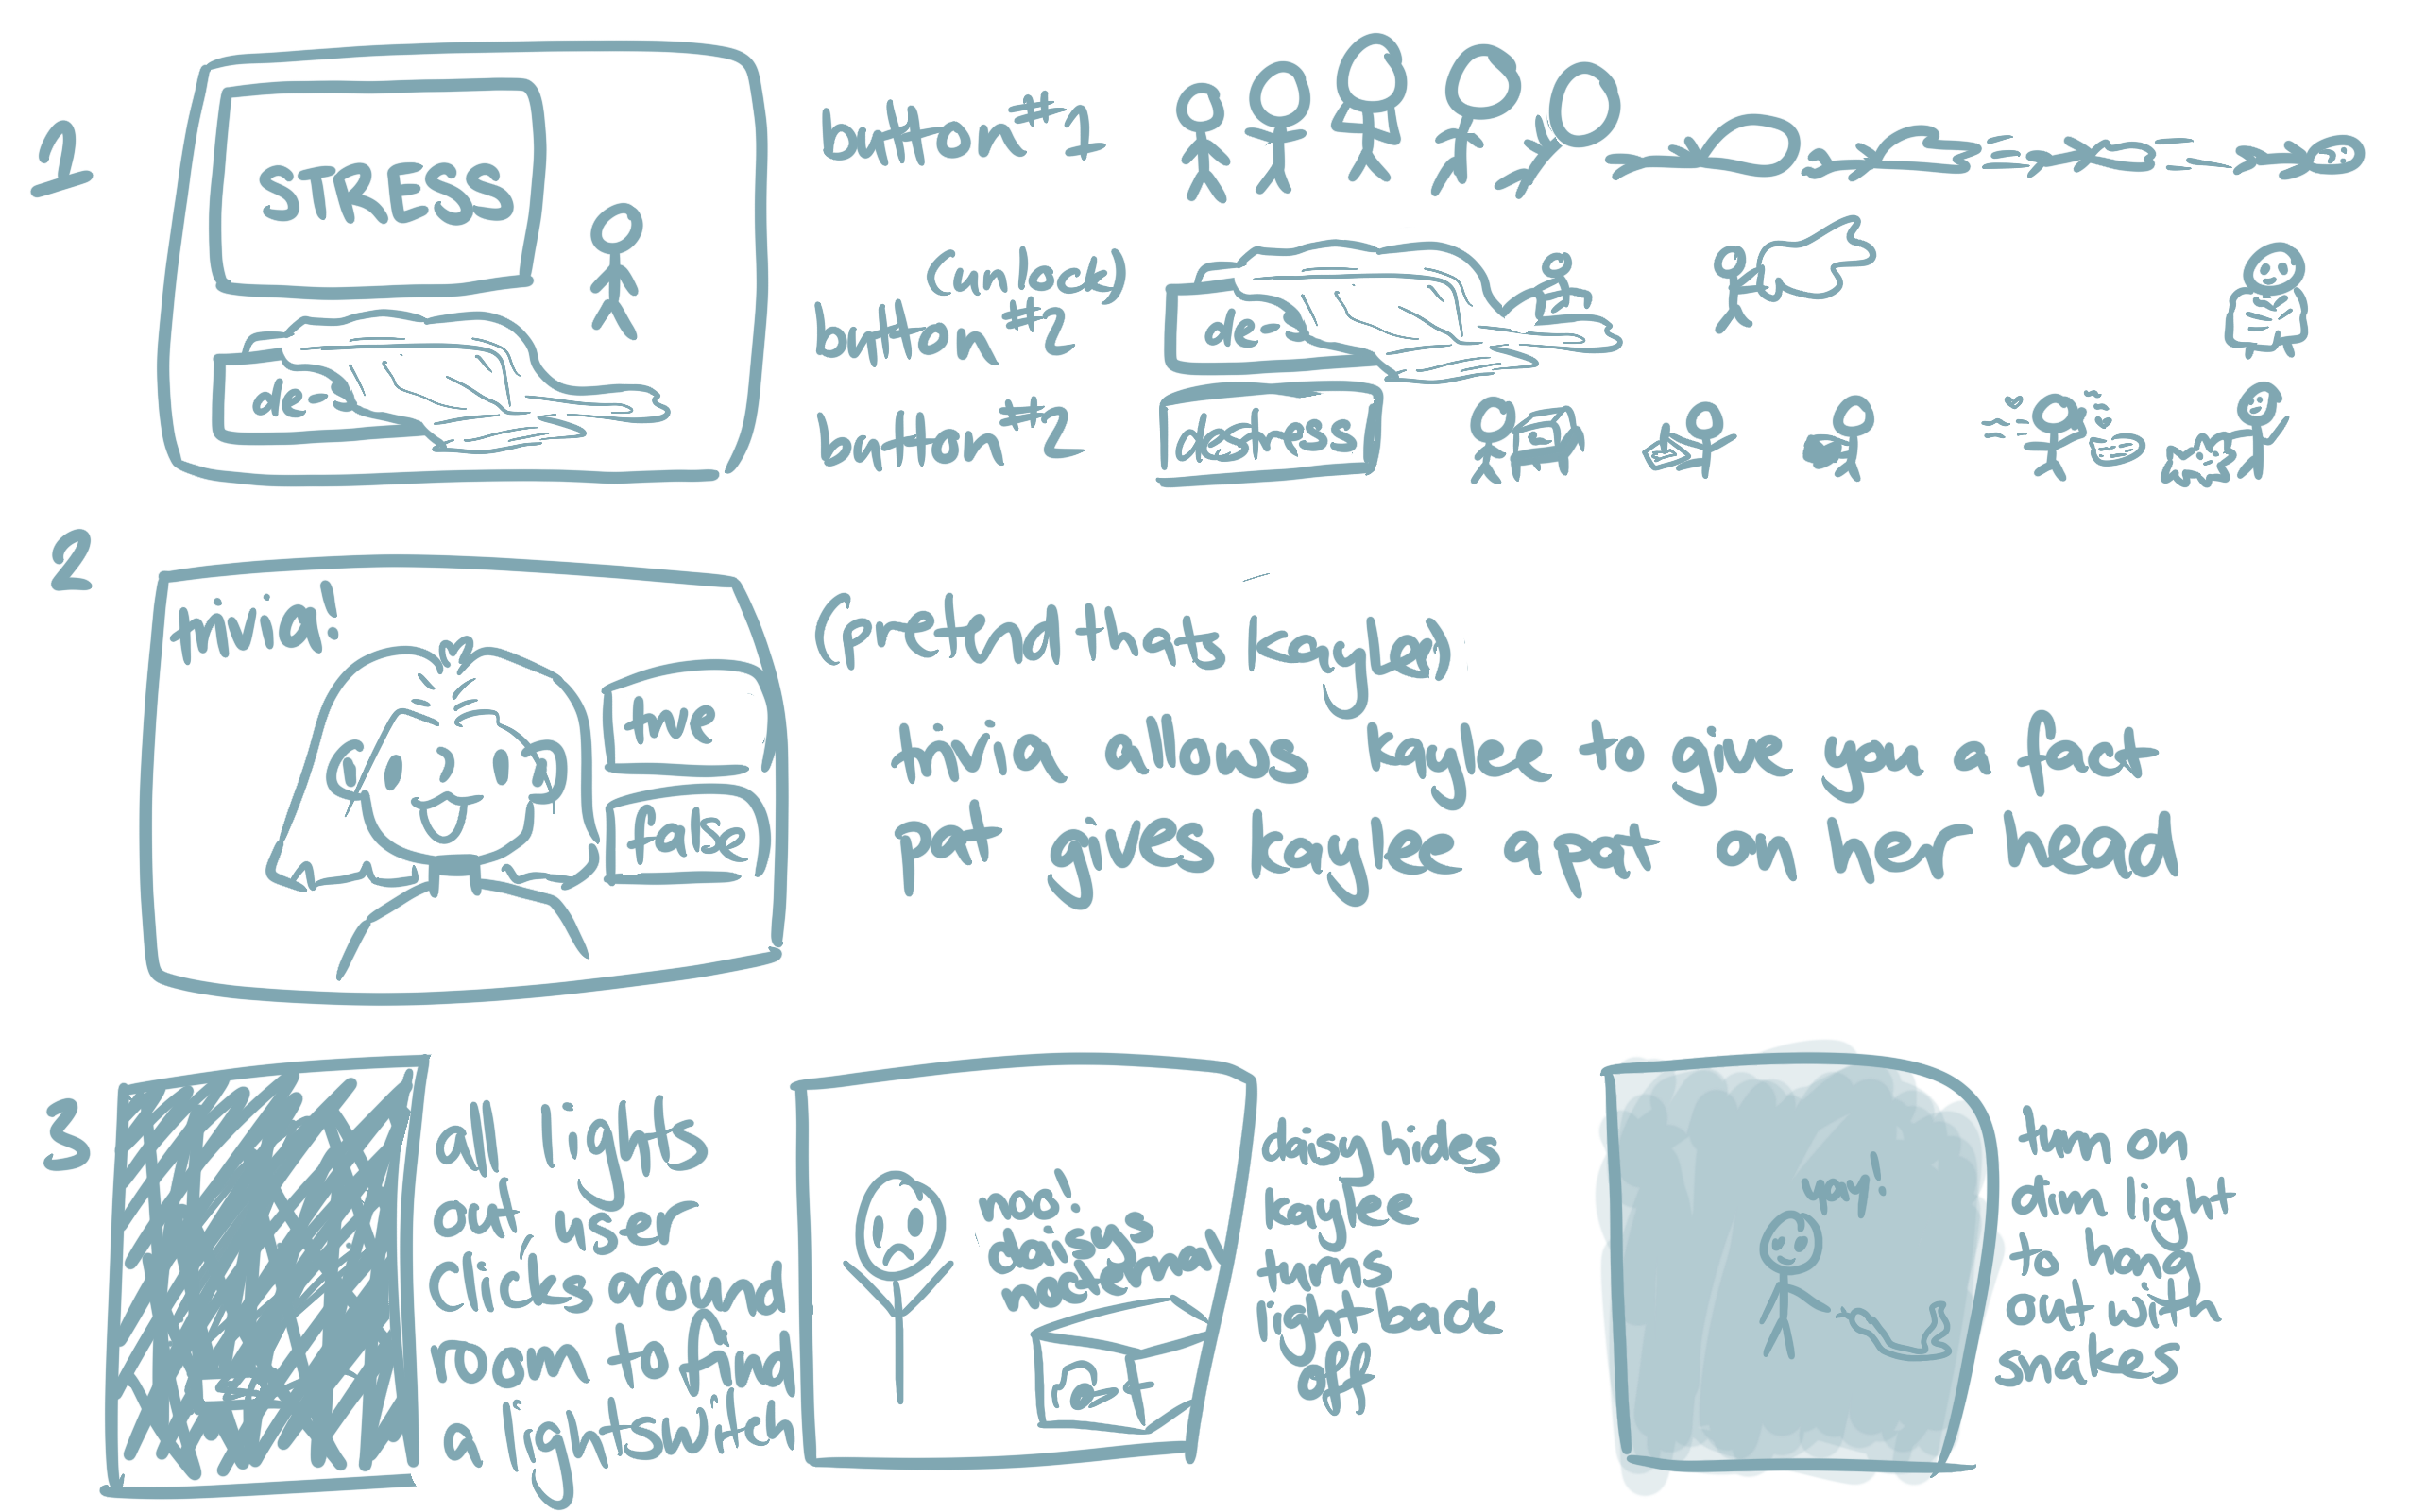 1
STRESS
de-
button #1
(unlock)
button #2
de-
button #2
destress
2
trivia!
true
false
(pretend thats kaylee)
trivia allows kaylee to give you a fact
pat gives kaylee a pat on her head
3
all lights
out user
clicks around
room to find
a lightswitch
noo!
daisys
nocturnal
daisy hides
kaylee
turns
light back
off
yay!
turn on
dim light
to hang
out with
snakes